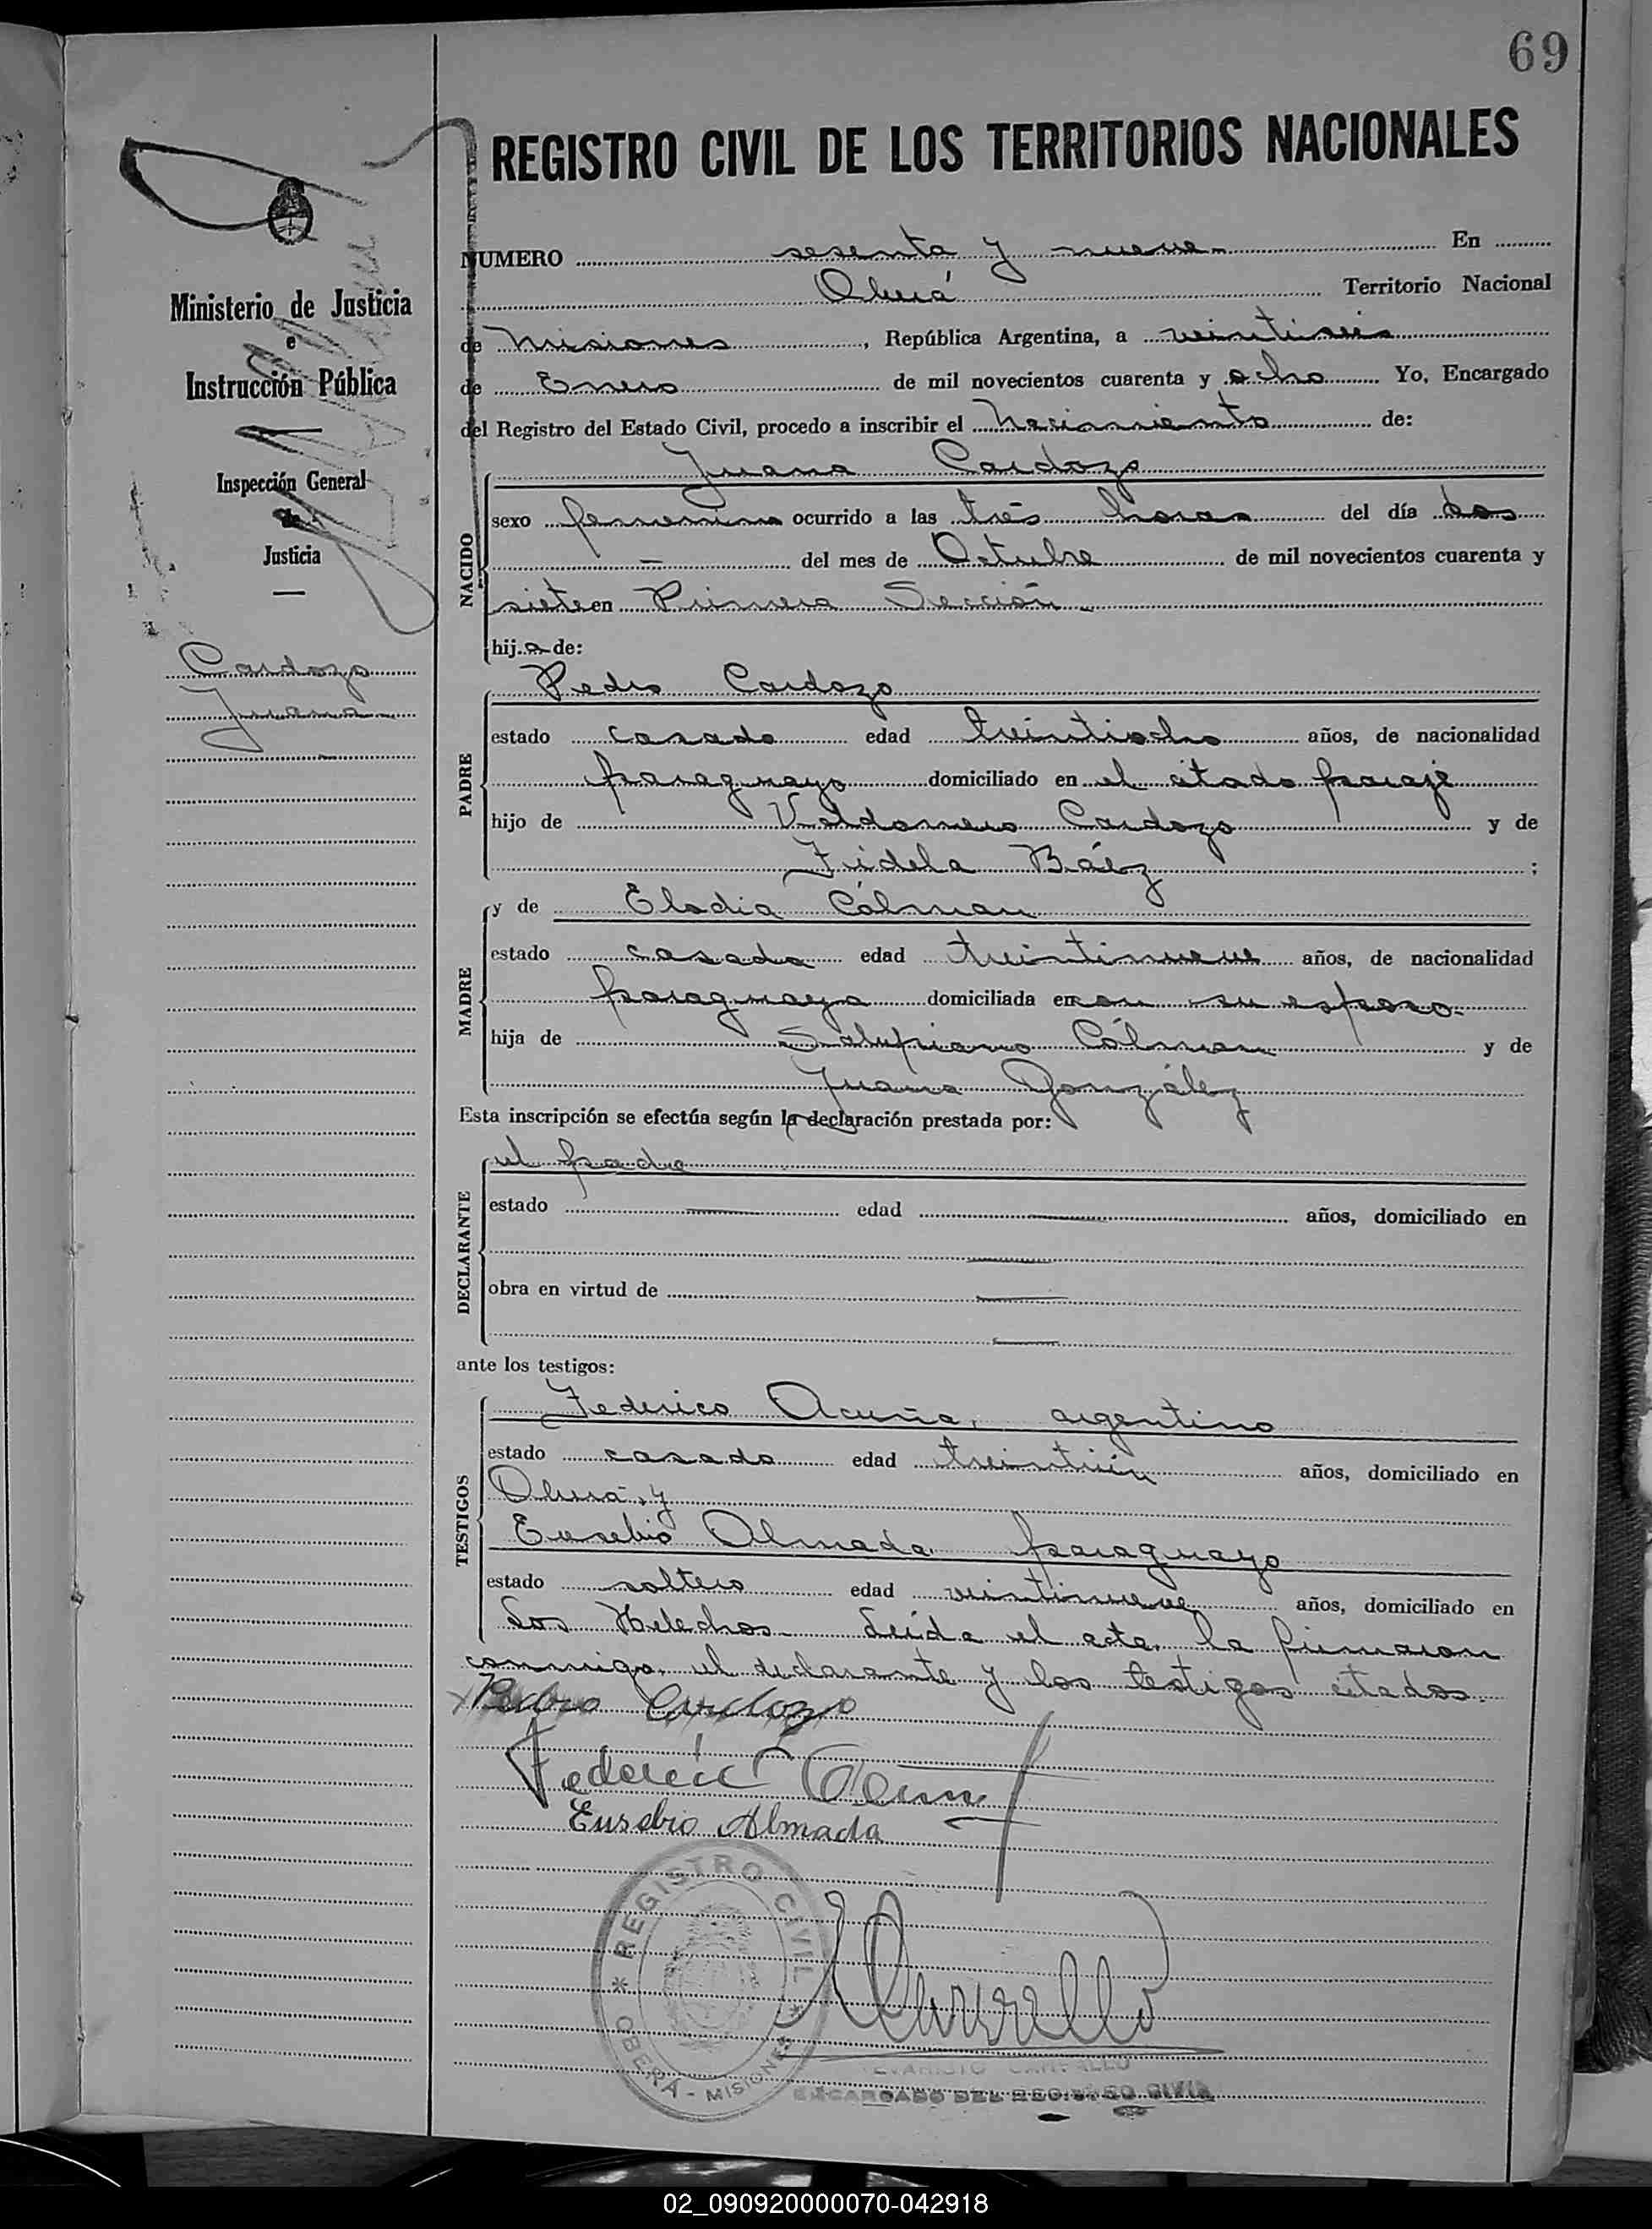 69
REGISTRO CIVIL DE LOS TERRITORIOS NACIONALES
NUMERO sesenta y nueve En
Oberá Territorio Nacional
de Misiones, República Argentina, a veintiseis
de Enero de mil novecientos cuarenta y ocho Yo, Encargado
del Registro del Estado Civil, procedo a inscribir el Nacimiento de:
Juana Cardozo
NACIDO
sexo femenino ocurrido a las tres horas del día dos
— del mes de Octubre de mil novecientos cuarenta y
siete en Primera Sección
hija de:
Pedro Cardozo
PADRE
estado casado edad treintiocho años, de nacionalidad
paraguayo domiciliado en el citado paraje
hijo de Valdomero Cardozo y de
Fidela Báez ;
MADRE
y de Elodia Cólman
estado casada edad treintinueve años, de nacionalidad
paraguaya domiciliada en con su esposo.
hija de Cólman y de
Juana González
Esta inscripción se efectúa según la declaración prestada por:
DECLARANTE
el padre
estado — edad — años, domiciliado en
—
obra en virtud de —
—
ante los testigos:
TESTIGOS
Federico Acuña, argentino
estado casado edad treintiún años, domiciliado en
Oberá, y
Eusebio Almada paraguayo
estado soltero edad veintinueve años, domiciliado en
Los Helechos. Leída el acta, la firmaron
conmigo, el declarante y los testigos citados.
Pedro Cardozo
Federico Acuña
Eusebio Almada
REGISTRO CIVIL
OBERÁ - MISIONES
EVARISTO CARVALLO
ENCARGADO DEL REGISTRO CIVIL
Ministerio de Justicia
e
Instrucción Pública
Inspección General
de
Justicia
Cardozo
Juana
02_090920000070-042918